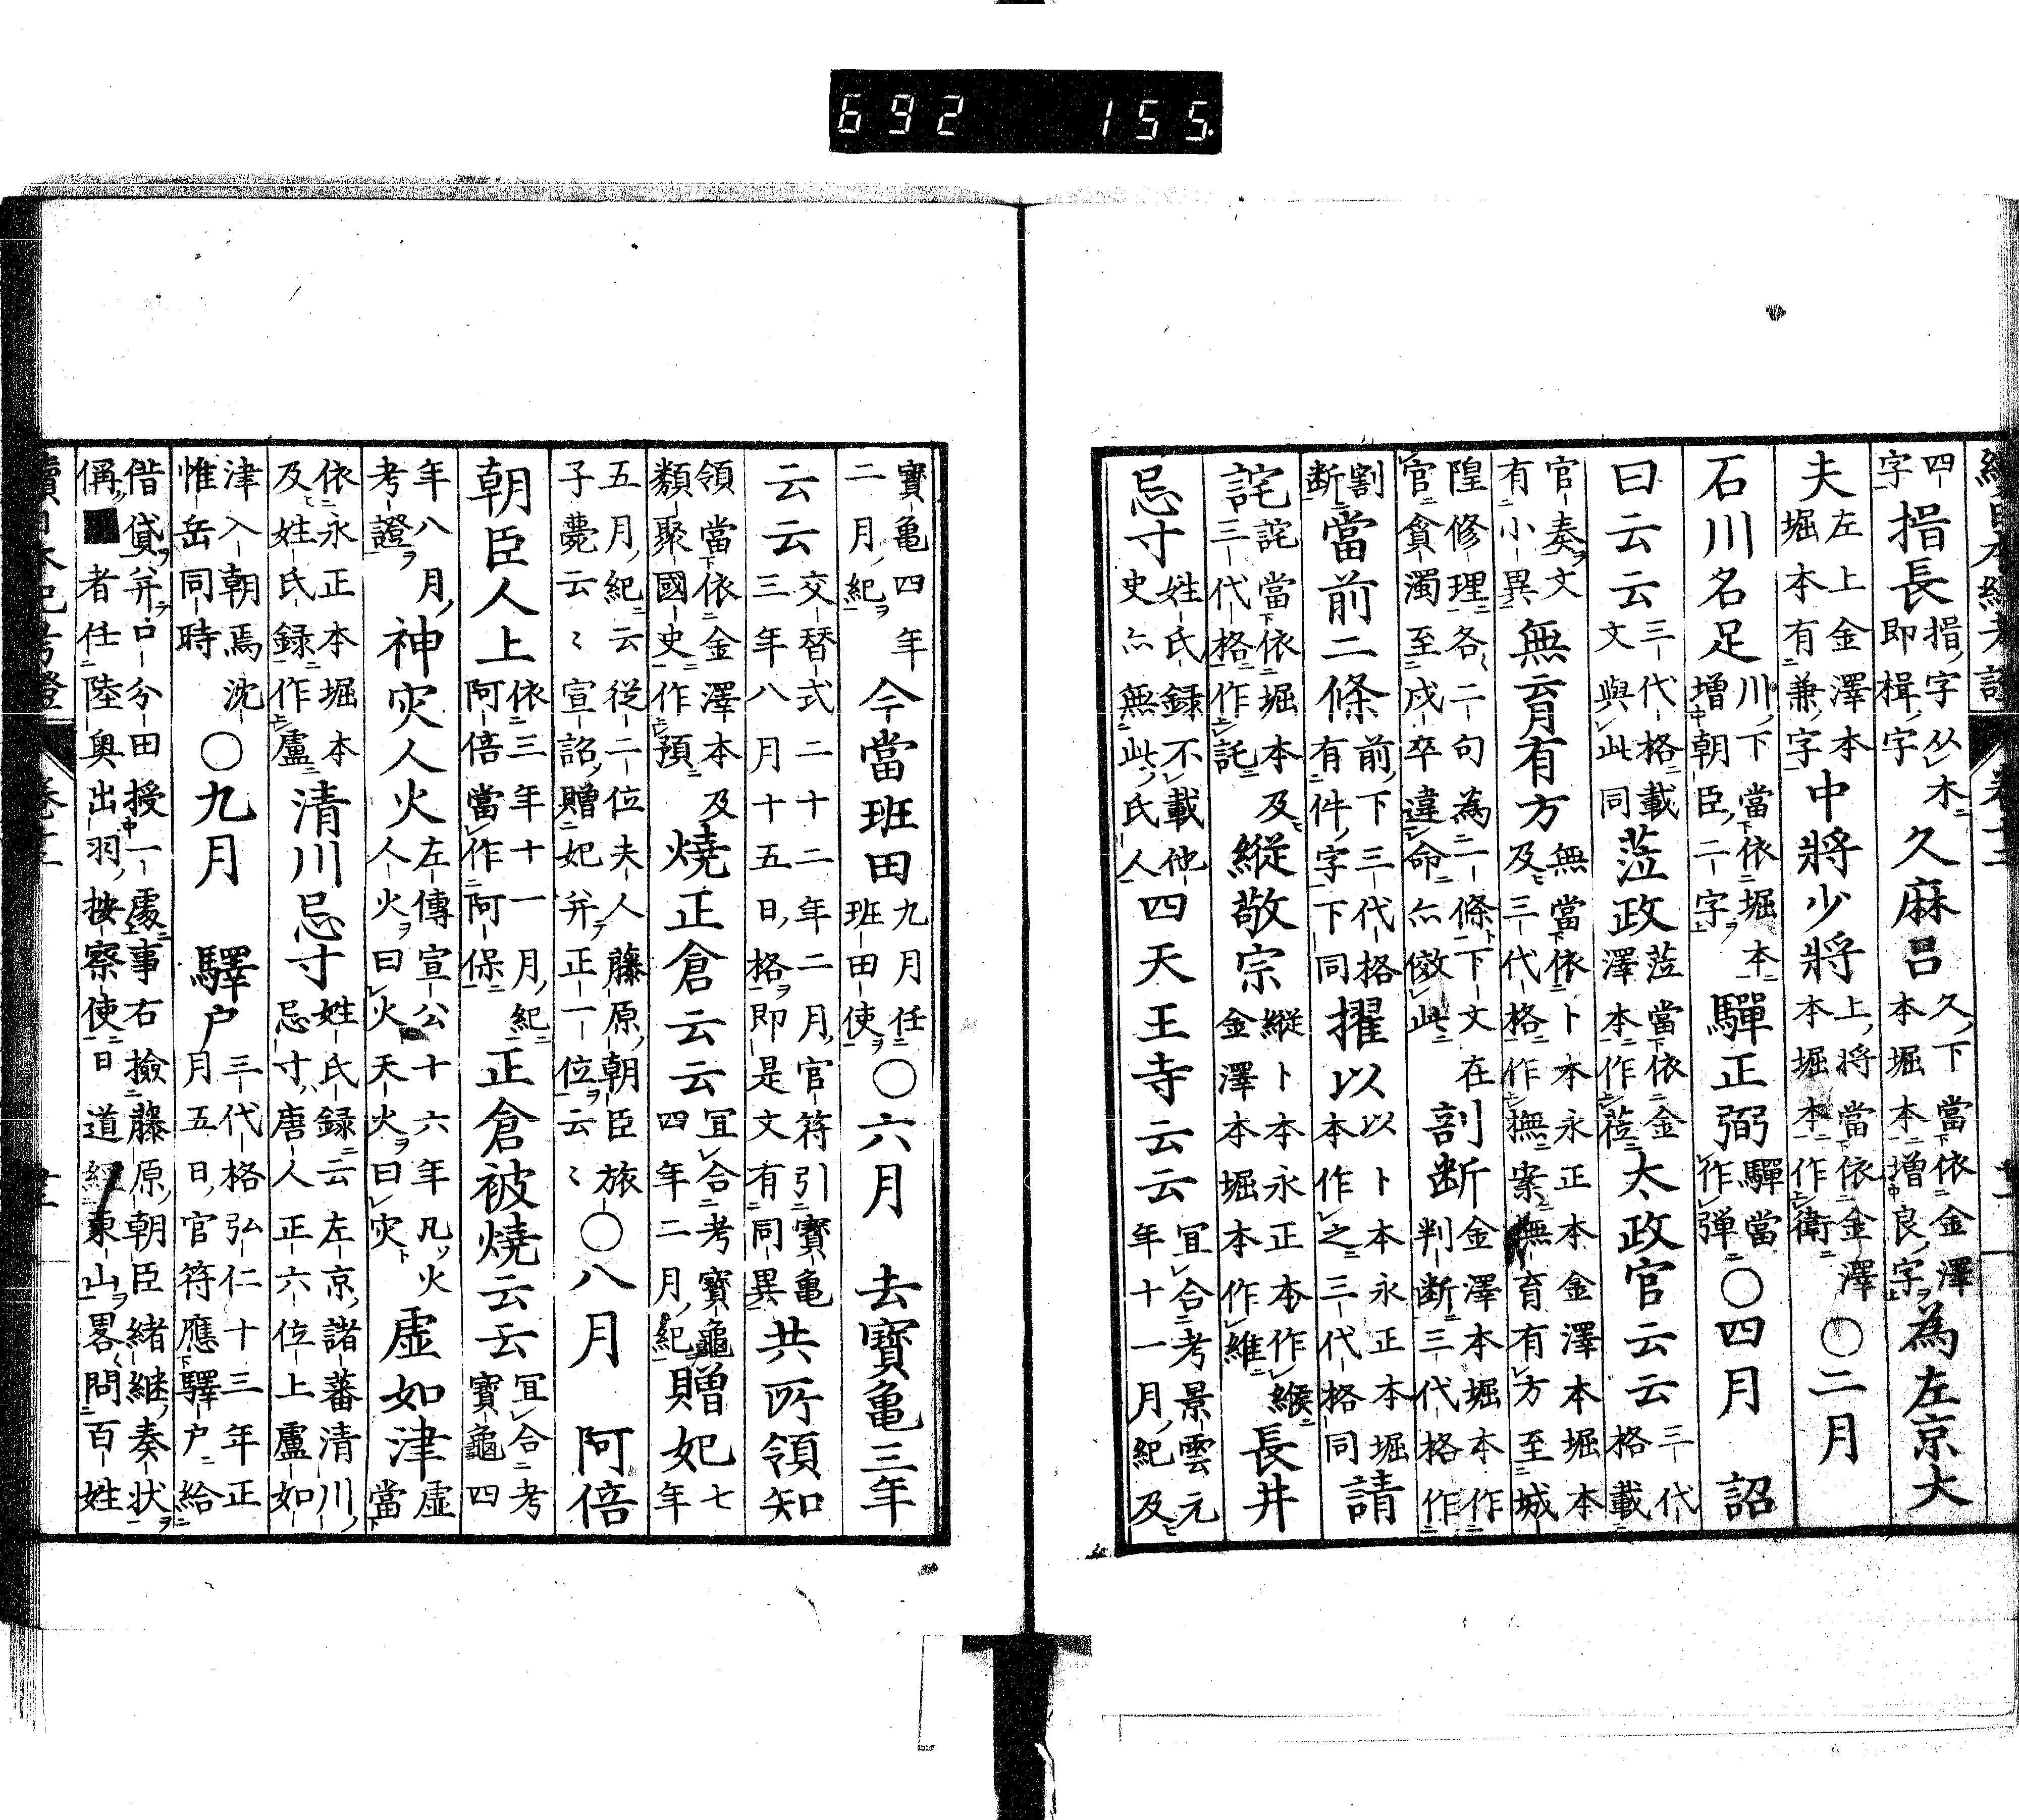 692 155.
四字 揖長 揖字从木即楫字 久麻呂 久下當依金澤本堀本增良字 為左京大
夫 左上金澤本堀本有兼字 中將少將 上將當依金澤本堀本作衛 ○二月
石川名足 川下當依堀本增朝臣二字 驒正弼 驒當作弾 ○四月 詔
曰云云 三代格載文與此同 蒞政 蒞當依金澤本作莅 太政官云云 三代格載
官奏文有小異 無育有方 無當依卜本永正本金澤本堀本及三代格作撫案撫育有方至城
隍修理各二句為一條下文在官貪濁至戍卒違命亦倣此 剖断 金澤本堀本作判断三代格作
割断 當前二條 前下三代格有件字下同 擢以 以卜本永正本堀本作之三代格同 請
詫 詫當依堀本及三代格作託 縦敬宗 縦卜本永正本作緱金澤本堀本作維 長井
忌寸 姓氏録不載他史亦無此氏人 四天王寺云云 宜合考景雲元年十一月紀及
寶亀四年二月紀 今當班田 九月任班田使 ○六月 去寶亀三年
云云 交替式二十二年二月官符引寶亀三年八月十五日格即是文有同異 共所領知
領當依金澤本及類聚國史作預 燒正倉云云 宜合考寶龜四年二月紀 贈妃 七年
五月紀云從二位夫人藤原朝臣旅子薨云〻宣詔贈妃并正一位云〻 ○八月 阿倍
朝臣人上 依三年十一月紀阿倍當作阿保 正倉被燒云云 宜合考寶龜四
年八月考證 神灾人火 左傳宣公十六年凡火人火曰火天火曰灾 虚如津 虚當
依永正本堀本及姓氏録作盧 清川忌寸 姓氏録云左京諸蕃清川忌寸唐人正六位上盧如
津入朝焉沈惟岳同時 ○九月 驛户 三代格弘仁十三年正月五日官符應驛户給
借貸并口分田授一處事右撿藤原朝臣緒継奏状偁者任陸奥出羽按察使日道經東山畧問百姓